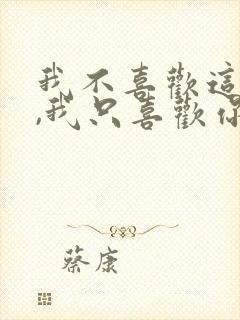 我不喜歡這
,我只喜歡你
蔡康